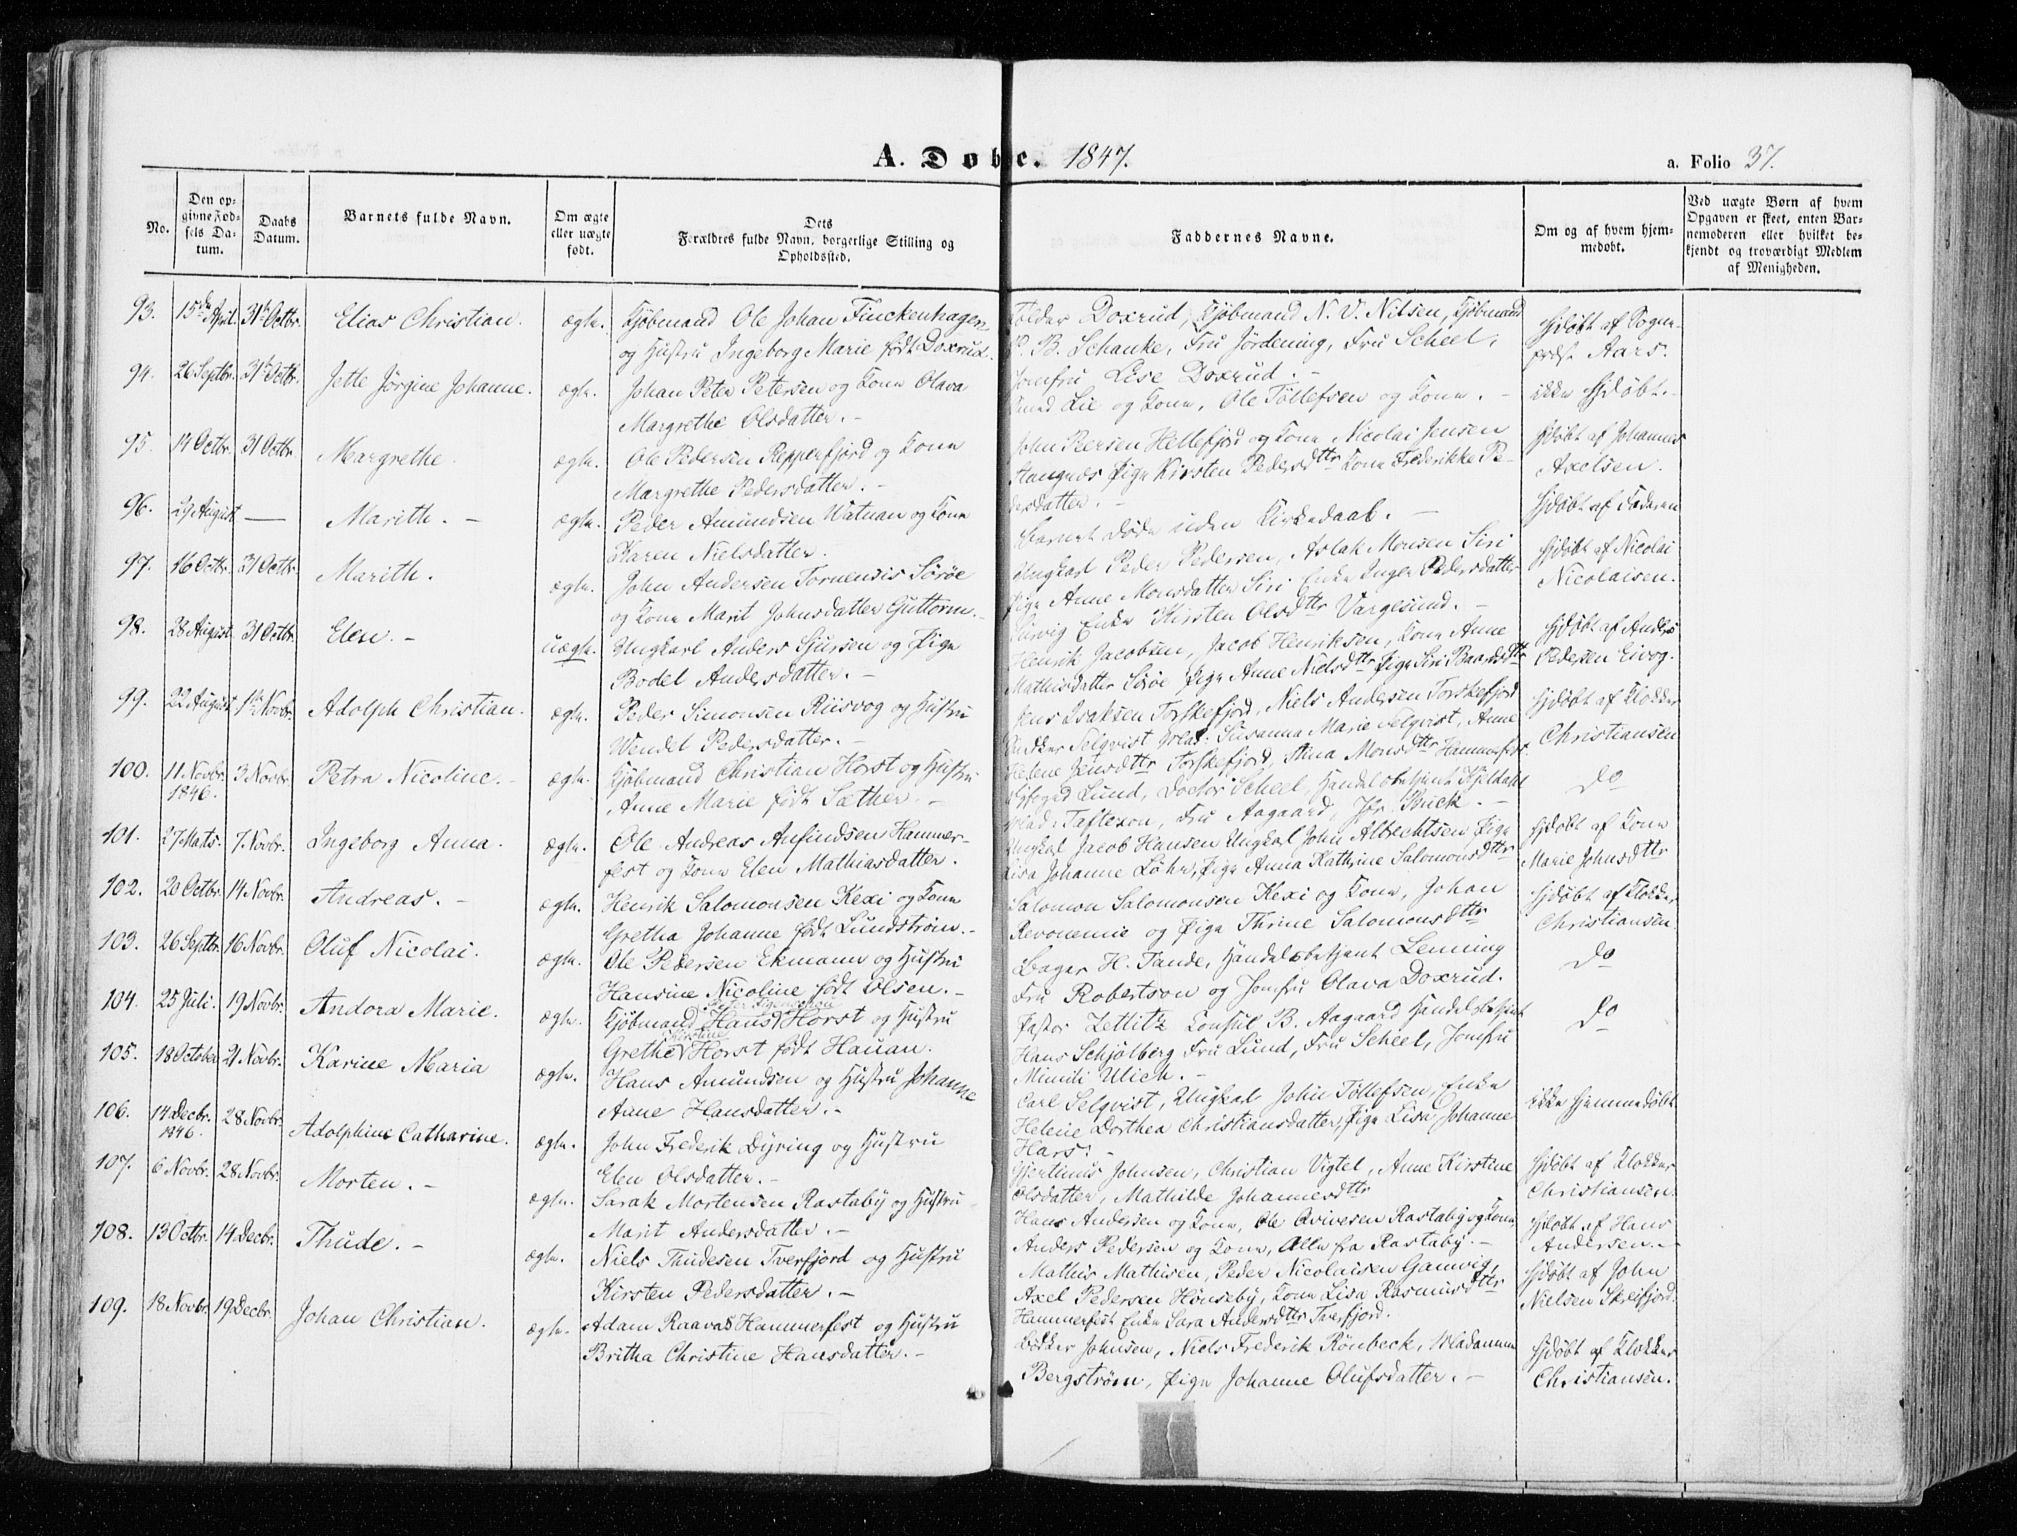 A. Døbte. 1847.
a. Folio 37.
No.
Den opgivne Fødsels Datum.
Daabs Datum.
Barnets fulde Navn.
Om ægte eller uægte født.
Dets Forældres fulde Navn, borgerlige Stilling og Opholdssted.
Faddernes Navne.
Om og af hvem hjemmedøbt.
Ved uægte Børn af hvem Opgaven er skeet, enten Barnemoderen eller hvilket bekjendt og troværdigt Medlem af Menigheden.
93. 15de April. 31te Octbr. Elias Christian. ægte. Kjøbmand Ole Johan Finckenhagen
og Hustru Ingeborg Marie født Doxrud.
Doxrud, Kjøbmand N. V. Nilsen, Kjøbmand
P. B. Schanke, Fru Jordening, Fru Scheel,
Jomfru Lise Doxrud. -
Hjdøbt af Sogne-
præst Aars.
94. 26 Septbr. 31te Octbr. Jette Jørgine Johanne. ægte. Johan Peter Petersen og Kone Olava
Margrethe Olsdatter. -
Knud Lie og Kone, Ole Tollefsen og Kone. -
ikke Hjdøbt. -
95. 14 Octbr. 31 Octbr. Margrethe. ægte. Ole Pedersen Repperfjord og Kone
Margrethe Pedersdatter. -
John Peersen Hellefjord og Kone Nicolai Jensen
Hangnæs Pige Kirsten Pedersdttr Kone Frederikke Pe-
dersdatter. -
Hjdøbt af Johannes
Axelsen.
96. 29 August — Marith. - ægte. Peder Amundsen Watnan og Kone
Karen Nielsdatter.
Barnet døde uden Kirkedaab. -
Hjdøbt af Faderen
97. 16 Octbr. 31 Octbr. Marith. ægte. John Andersen Tornensis Sørøe
og Kone Marit Johnsdatter Guttorm. -
Ungkarl Peder Pedersen, Aslak Monsen Siri
Pige Anne Monsdatter Siri Enke Inger Pedersdatter
Enke Kirsten Olsdttr Vargsund. -
Hjdøbt af Nicolai
Nicolaisen.
98. 28 August. 31 Octbr. Elen. - uægte. Ungkarl Anders Sjursen og Pige
Bodel Andersdatter. -
Henrik Jacobsen, Jacob Henriksen, Kone Anne
Mathisdatter Sørøe Pige Anne Nielsdttr Pige Siri Baardsdttr
Hjdøbt af Anders
Pedersen Eivog.
99. 22 August. 1te Novbr. Adolph Christian. ægte. Peder Simonsen Riisvog og Hustru
Wendel Pedersdatter. -
Jens Isaksen Torskefjord, Niels Andersen Torskefjord
Snekker Selqvist Mad: Susanna Marie Selqvist, Anne
Helene Jensdttr Torskefjord, Stina Monsdttr Hammerfest.
Hjdøbt af Klokker
Christiansen
100. 11 Novbr. 1846. 3 Novbr. Petra Nicoline. - ægte. Kjøbmand Christian Horst og Hustru
Anne Marie født Sæther. -
Byfoged Lund, Doctor Scheel, Handelsbetjent Kjeldahl
Mad: Tafleson, Fru Aagaard, Jfr. Buck. -
Do
101. 27 Mats. 7 Novbr. Ingeborg Anna. ægte. Ole Andreas Anfindsen Hammer-
fest og Kone Elen Mathiasdatter.
Ungkal Jacob Hansen Ungkal John Albrechtsen Pige
Lisa Johanne Løhr, Pige Anna Kathrine Salomonsdttr
Hjdøbt af Kone
Marie Johnsdttr
102. 20 Octbr. 14 Novbr. Andreas. - ægte. Henrik Salomonsen Kexi og Kone
Gretha Johanne født Lundstrøm. -
Salomon Salomonsen Kexi og Kone, Johan
Revonemie og Pige Thrine Salomonsdttr
Hjdøbt af Klokker
Christiansen
103. 26 Septbr. 16 Novbr. Oluf Nicolai. ægte. Ole Pedersen Ekmann og Hustru
Hansine Nicoline født Olsen. -
Bager H. Tande, Handelsbetjent Lenning
Fru Robertson og Jomfru Olava Doxrud.
Do
104. 25 Juli. 19 Novbr. Andora Marie. ægte. Kjøbmand Hans Horst og Hustru
Grethe Horst født Hauan.
Pastor Zetlitz Consul B. Aagaard Handelsbetjent
Hans Schjølberg Fru Lund, Fru Scheel, Jomfru
Mimili Ulich. -
Do
105. 18 October 21 Novbr. Karine Maria ægte. Hans Amundsen og Hustru Johanne
Anne Hansdatter. -
Carl Selqvist, Ungkal John Tollefsen, Enke
Helene Dorthea Christiansdatter, Pige Lisa Johanne
Hars. -
ikke Hjemmedøbt
106. 14 Decbr. 1846. 28 Novbr. Adolphine Catharine. ægte. John Frederik Dyring og Hustru
Elen Olsdatter. -
Gjertinius Johnsen, Christian Vigtel, Anne Kirstine
Olsdatter, Mathilde Johannesdttr
Hjdøbt af Klokker
Christiansen.
107. 6 Novbr. 28 Novbr. Morten. - ægte. Sarak Mortensen Rastaby og Hustru
Marit Andersdatter. -
Hans Andersen og Kone, Ole Qvivesen Rastaby og Kone
Anders Pedersen og Kone, Alle fra Rastaby. -
Hjdøbt af Hans
Andersen. -
108. 13 Octbr. 14 Decbr. Thude. - ægte. Niels Taudesen Tverfjord og Hustru
Kirsten Pedersdatter. -
Mathis Mathisen, Peder Nicolaisen Gamvig,
Axel Pedersen Hønseby, Kone Lisa Rasmusdttr
Hammerfest Enke Sara Andersdttr Tverfjord.
Hjdøbt af John
Nielsen Skreifjord.
109. 18 Novbr. 19 Decbr. Johan Christian. ægte. Adam Raavas Hammerfest og Hustru
Britha Christine Hansdatter. -
Bødker Johnsen, Niels Frederik Rønbeck, Madamme
Bergstrøm, Pige Johanne Olufsdatter. -
Hjdøbt af Klokker
Christiansen.